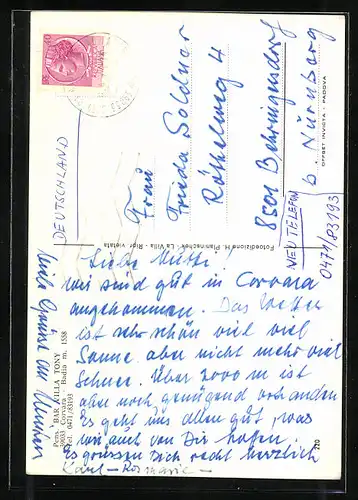 Liebe Mutti!
wir sind gut in Corvara
angekommen. Das Wetter
ist sehr schön viel viel
Sonne aber nicht mehr viel
Schnee. Über 2000 m ist
aber noch genügend vorhanden
Es geht uns allen gut, was
wir auch von Dir hoffen.
Es grüssen Dich recht herzlich
Karl - Rosmarie -
Viele Grüsse an
Pens. BAR VILLA TONY
39033 Corvara - Badia m. 1558
Tel. (0471) 83193
220
Fotoedizione H. Planinschek - La Villa - Ripr. vietata
OFFSET INVICTA - PADOVA
DEUTSCHLAND
Frau
Frieda Soldner
Röthelweg 4
8501 Behringersdorf
b. Nürnberg
NEU TELEFON
0471/83193